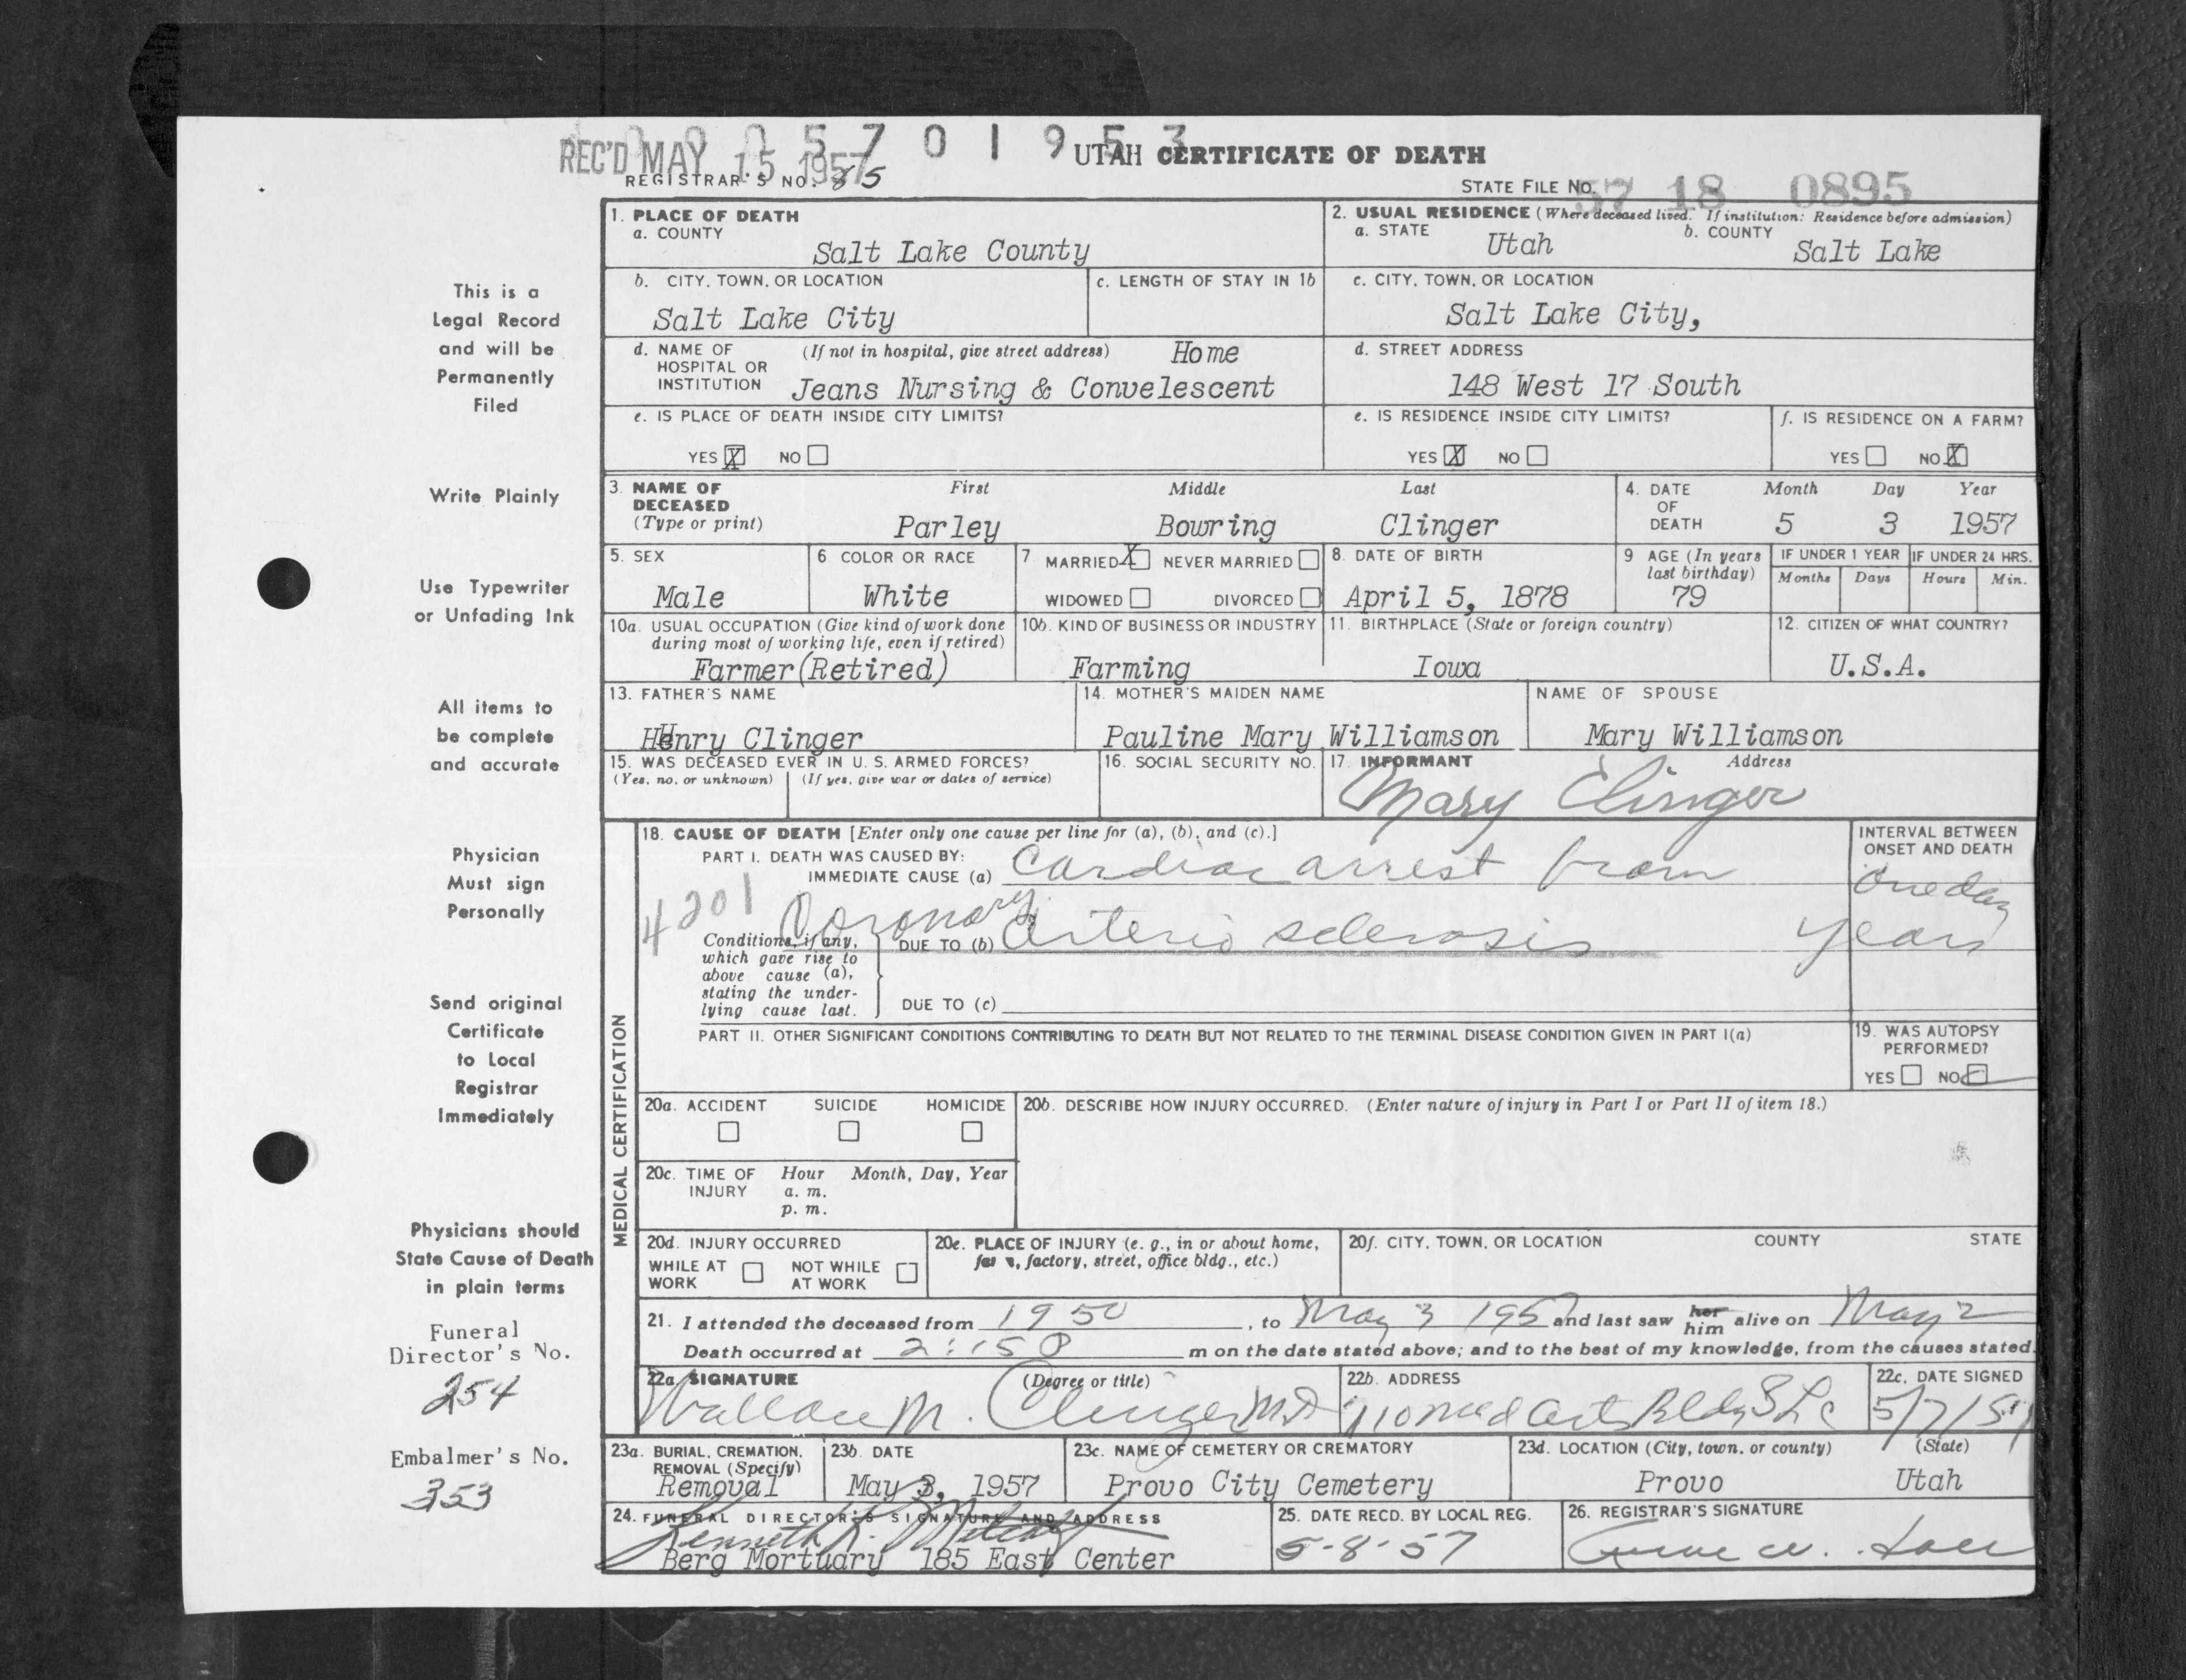 0 0 0 5 7 0 1 9 5 3
REC'D MAY 15 1957
UTAH CERTIFICATE OF DEATH
REGISTRAR'S NO. 85
STATE FILE NO. 57 18 0895
This is a
Legal Record
and will be
Permanently
Filed
Write Plainly
Use Typewriter
or Unfading Ink
All items to
be complete
and accurate
Physician
Must sign
Personally
Send original
Certificate
to Local
Registrar
Immediately
Physicians should
State Cause of Death
in plain terms
Funeral
Director's No.
254
Embalmer's No.
353
1. PLACE OF DEATH
a. COUNTY
Salt Lake County
2. USUAL RESIDENCE (Where deceased lived. If institution: Residence before admission)
a. STATE Utah b. COUNTY Salt Lake
b. CITY, TOWN, OR LOCATION
Salt Lake City
c. LENGTH OF STAY IN 1b
c. CITY, TOWN, OR LOCATION
Salt Lake City,
d. NAME OF (If not in hospital, give street address) Home
HOSPITAL OR
INSTITUTION Jeans Nursing & Convelescent
d. STREET ADDRESS
148 West 17 South
e. IS PLACE OF DEATH INSIDE CITY LIMITS?
YES X NO
e. IS RESIDENCE INSIDE CITY LIMITS?
YES X NO
f. IS RESIDENCE ON A FARM?
YES NO X
3. NAME OF DECEASED (Type or print)
First Middle Last
Parley Bowring Clinger
4. DATE OF DEATH
Month Day Year
5 3 1957
5. SEX
Male
6. COLOR OR RACE
White
7 MARRIED X NEVER MARRIED
WIDOWED DIVORCED
8. DATE OF BIRTH
April 5, 1878
9 AGE (In years last birthday)
79
IF UNDER 1 YEAR IF UNDER 24 HRS.
Months Days Hours Min.
10a. USUAL OCCUPATION (Give kind of work done
during most of working life, even if retired)
Farmer(Retired)
10b. KIND OF BUSINESS OR INDUSTRY
Farming
11. BIRTHPLACE (State or foreign country)
Iowa
12. CITIZEN OF WHAT COUNTRY?
U.S.A.
13. FATHER'S NAME
Henry Clinger
14. MOTHER'S MAIDEN NAME
Pauline Mary Williamson
NAME OF SPOUSE
Mary Williamson
15. WAS DECEASED EVER IN U. S. ARMED FORCES?
(Yes, no, or unknown) (If yes, give war or dates of service)
16. SOCIAL SECURITY NO.
17. INFORMANT Address
Mary Clinger
MEDICAL CERTIFICATION
18. CAUSE OF DEATH [Enter only one cause per line for (a), (b), and (c).]
PART I. DEATH WAS CAUSED BY:
IMMEDIATE CAUSE (a) Cardiac arrest from
INTERVAL BETWEEN
ONSET AND DEATH
One day
4201
Conditions, if any,
which gave rise to
above cause (a),
stating the under-
lying cause last.
DUE TO (b) Coronary arterio sclerosis years
DUE TO (c)
PART II. OTHER SIGNIFICANT CONDITIONS CONTRIBUTING TO DEATH BUT NOT RELATED TO THE TERMINAL DISEASE CONDITION GIVEN IN PART I(a)
19. WAS AUTOPSY
PERFORMED?
YES NO
20a. ACCIDENT SUICIDE HOMICIDE
20b. DESCRIBE HOW INJURY OCCURRED. (Enter nature of injury in Part I or Part II of item 18.)
20c. TIME OF INJURY
Hour Month, Day, Year
a. m.
p. m.
20d. INJURY OCCURRED
WHILE AT WORK NOT WHILE AT WORK
20e. PLACE OF INJURY (e. g., in or about home,
factory, street, office bldg., etc.)
20f. CITY, TOWN, OR LOCATION COUNTY STATE
21. I attended the deceased from 1950, to May 3 1957 and last saw her him alive on May 2
Death occurred at 2:15 P m on the date stated above; and to the best of my knowledge, from the causes stated.
22a. SIGNATURE (Degree or title)
Wallace M. Clinger MD
22b. ADDRESS
710 Med Arts Bldg SLC
22c. DATE SIGNED
5/7/57
23a. BURIAL, CREMATION,
REMOVAL (Specify)
Removal
23b. DATE
May 3, 1957
23c. NAME OF CEMETERY OR CREMATORY
Provo City Cemetery
23d. LOCATION (City, town, or county) (State)
Provo Utah
24. FUNERAL DIRECTOR'S SIGNATURE AND ADDRESS
Kenneth
Berg Mortuary 185 East Center
25. DATE RECD. BY LOCAL REG.
5-8-57
26. REGISTRAR'S SIGNATURE